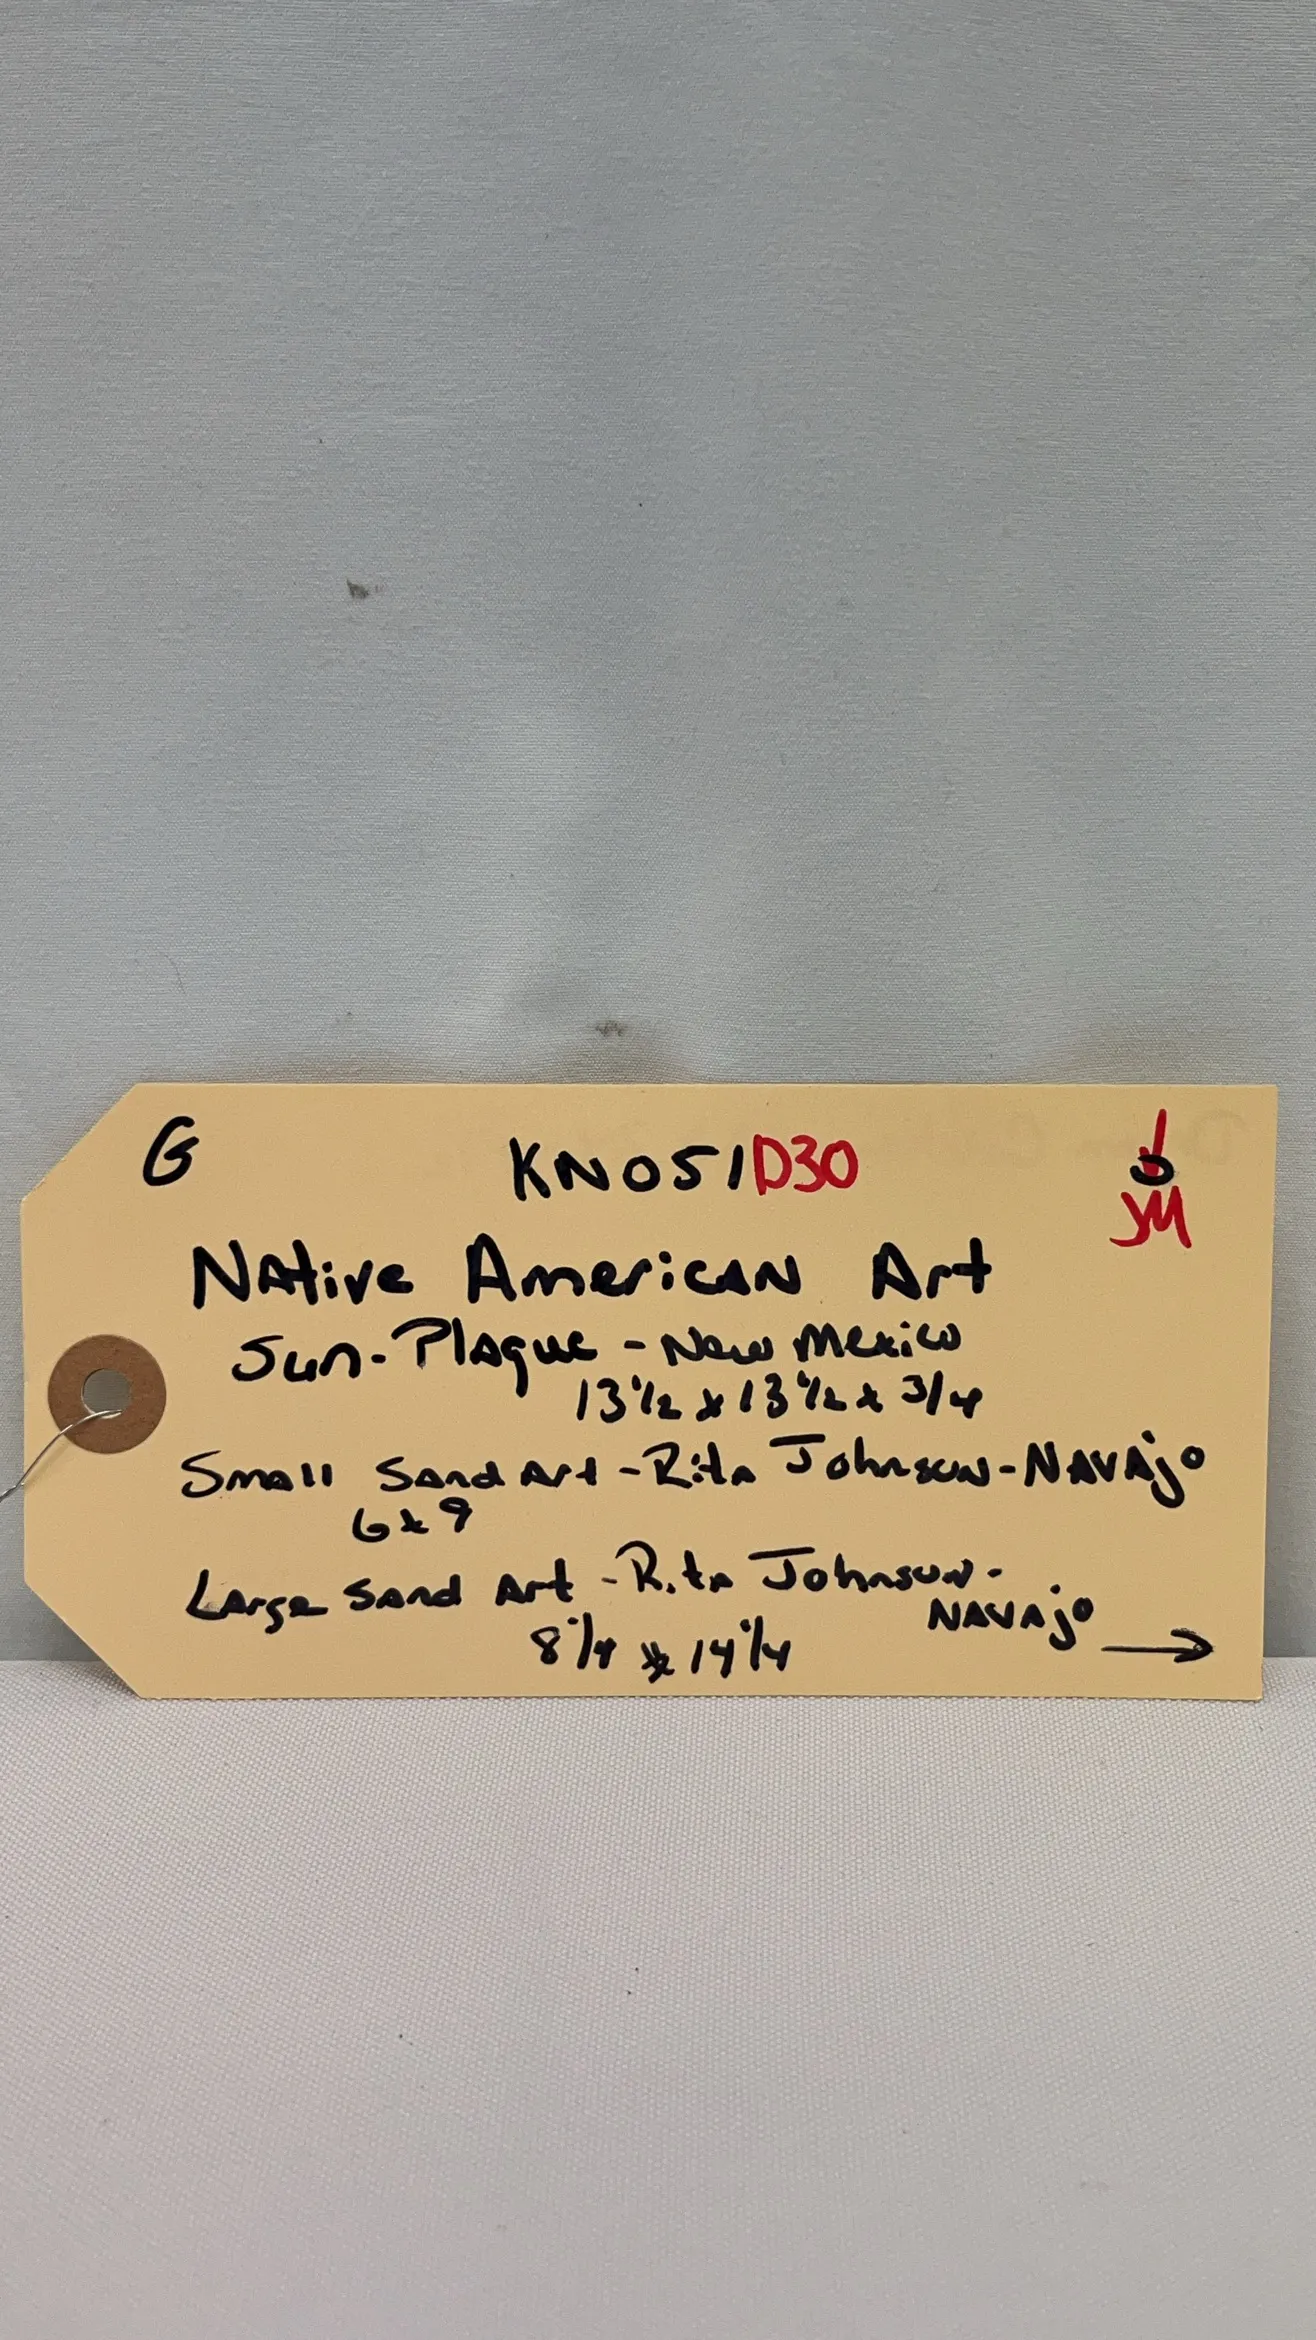 G KN051D30 b
JM
Native American Art
Sun-Plaque - New Mexico
13 1/2 x 13 1/2 x 3/4
Small Sand Art - Rita Johnson - NAVAjo
6x9
Large Sand Art - Rita Johnson -
NAVAjo →
8 1/4 x 14 1/4